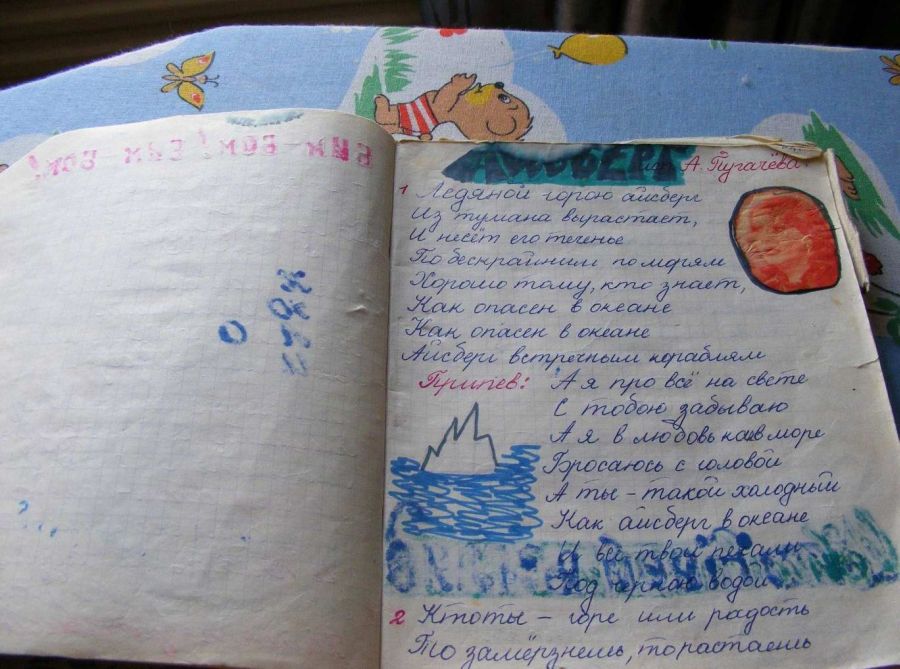 Айсберг
исп. А. Пугачёва
1 Ледяной горою айсберг
Из тумана вырастает,
И несёт его теченье
По бескрайним по морям
Хорошо тому, кто знает,
Как опасен в океане
Как опасен в океане
Айсберг встречным кораблям
Припев: А я про всё на свете
С тобою забываю
А я в любовь как в море
Бросаюсь с головой
А ты - такой холодный
Как айсберг в океане
И все твои печали
Под чёрною водой
2 Кто ты - горе или радость
То замёрзнешь, то растаешь